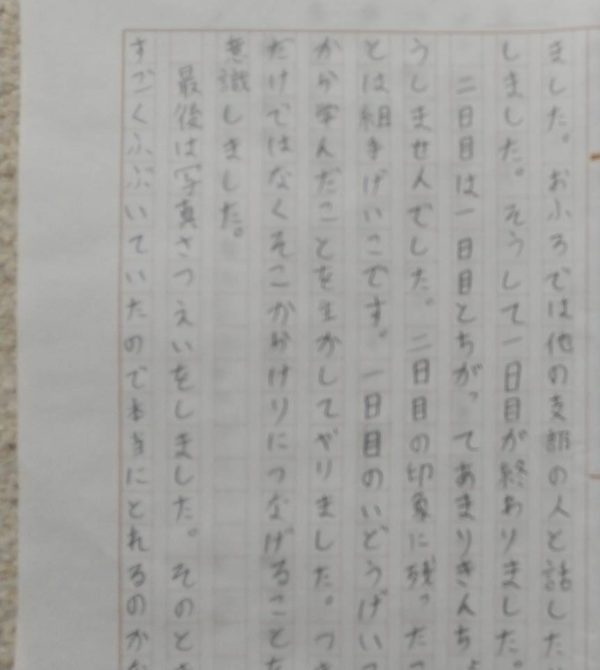 ました。おふろでは他の支部の人と話した
しました。そうして一日目が終わりました。
二日目は一日目とちがってあまりきんちょ
うしませんでした。二日目の印象に残ったこ
とは組手げいこです。一日目のいどうげいこ
から学んだことを生かしてやりました。つき
だけではなくそこからけりにつなげることを
意識しました。
最後は写真さつえいをしました。そのとき
すごくふぶいていたので本当にとれるのかな